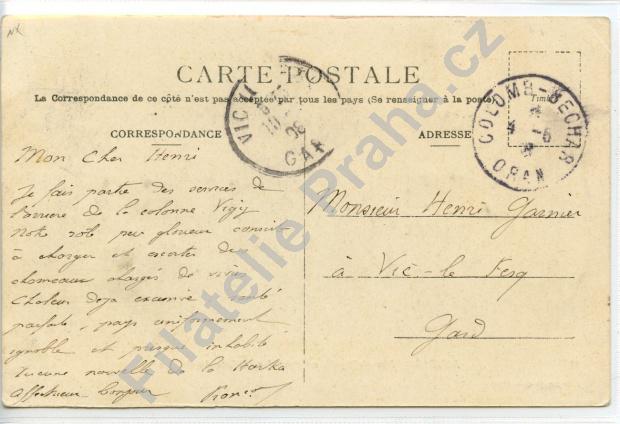 CARTE POSTALE
La Correspondance de ce côté n'est pas acceptée par tous les pays (Se renseigner à la poste)
Timbre
COLOMB-BECHAR
ORAN
CORRESPONDANCE
ADRESSE
Mon Cher Henri
Je fais partie des services de
de la colonne Vigy
Notre rôle peu glorieux consiste
à charger et escorter des
chameaux chargés de vivres
Chaleur deja excessive santé
parfaite, pays uniformément
ignoble et presque inhabité
Aucune nouvelle de la Harka
Affectueux bonjour
Monsieur Henri Garnier
à Vic-le-Fesq
Gard
Filatelie Praha.cz